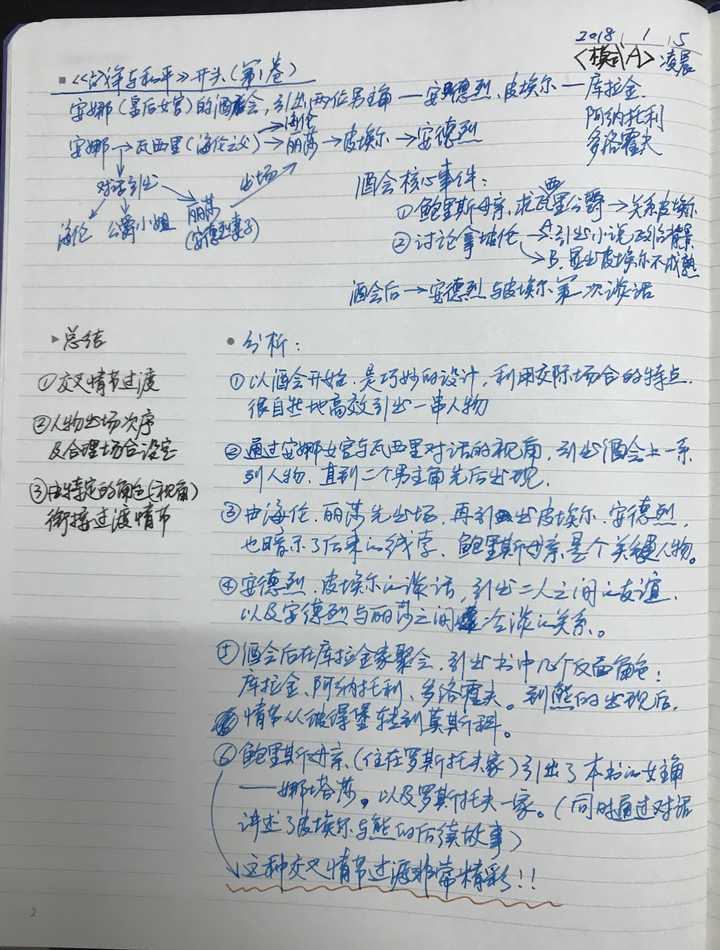 2018 1 5
<模式A> 凌晨
《战争与和平》开头(第1卷)
安娜(皇后女官)的酒会,引出两位男主—安德烈、皮埃尔—库拉金
阿纳托利
多洛霍夫
海伦
安娜→瓦西里(海伦之父)→丽莎→皮埃尔→安德烈
对话引出
出场
海伦 公爵小姐 丽莎
(安德烈妻子)
酒会核心事件:
西
①鲍里斯母亲,求瓦里公爵→关系皮埃尔
②讨论拿破伦→A.引出小说政治背景
→B.显出皮埃尔不成熟
酒会后→安德烈与皮埃尔第一次谈话
总结
①交叉情节过渡
②人物出场次序
及合理场合设定
③由特定的角色(视角)
衔接过渡情节
分析:
①以酒会开始,是巧妙的设计,利用交际场合的特点,
很自然地高效引出一串人物
②通过安娜女官与瓦西里对话的视角,引出酒会上一系
列人物,直到二个男主角先后出现.
③由海伦、丽莎先出场,再引出皮埃尔、安德烈,
也暗示了后来的线索,鲍里斯母亲是个关键人物。
④安德烈、皮埃尔的谈话,引出二人之间的友谊,
以及安德烈与丽莎之间冷淡的关系。
⑤酒会后在库拉金家聚会,引出书中几个反面角色:
库拉金、阿纳托利、多洛霍夫。到熊的出现后,
情节从彼得堡转到莫斯科。
⑥鲍里斯母亲,(住在罗斯托夫家)引出了本书的女主角
——娜塔莎。以及罗斯托夫一家。(同时通过对话
讲述了皮埃尔与熊的后续故事)
这种交叉情节过渡非常精彩!!
2